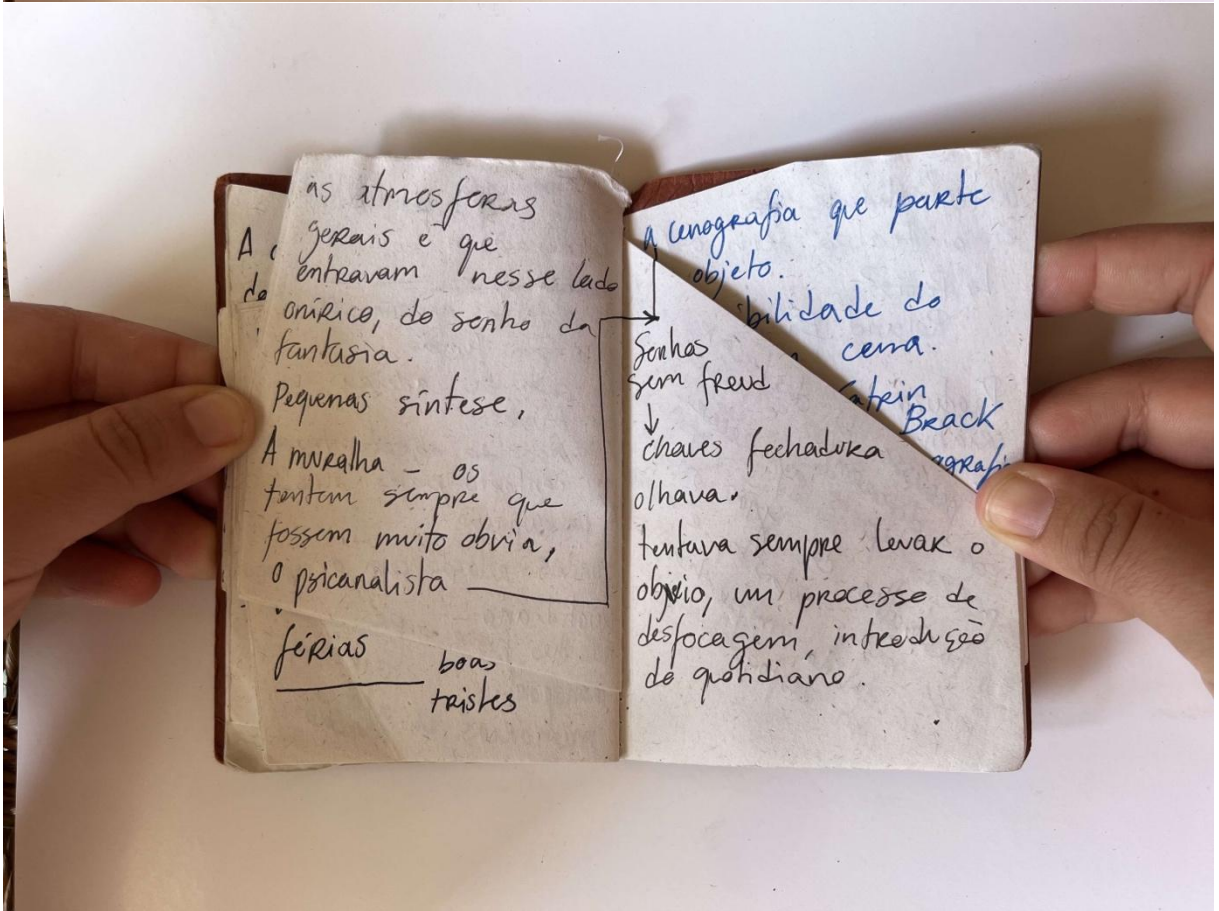 A
de
as atmosferas
gerais é que
entravam nesse lado
onírico, do sonho da
fantasia.
Pequenas síntese,
A muralha – os
tentem sempre que
fossem muito obvia,
o psicanalista
férias
boas
tristes
a cenografia que parte
objeto.
bilidade do
cena.
Catrin
Brack
ografi
Sonhos
sem freud
↓
chaves fechadura
olhava.
tentava sempre levar o
obvio, um processo de
desfocagem, introdução
do quotidiano.